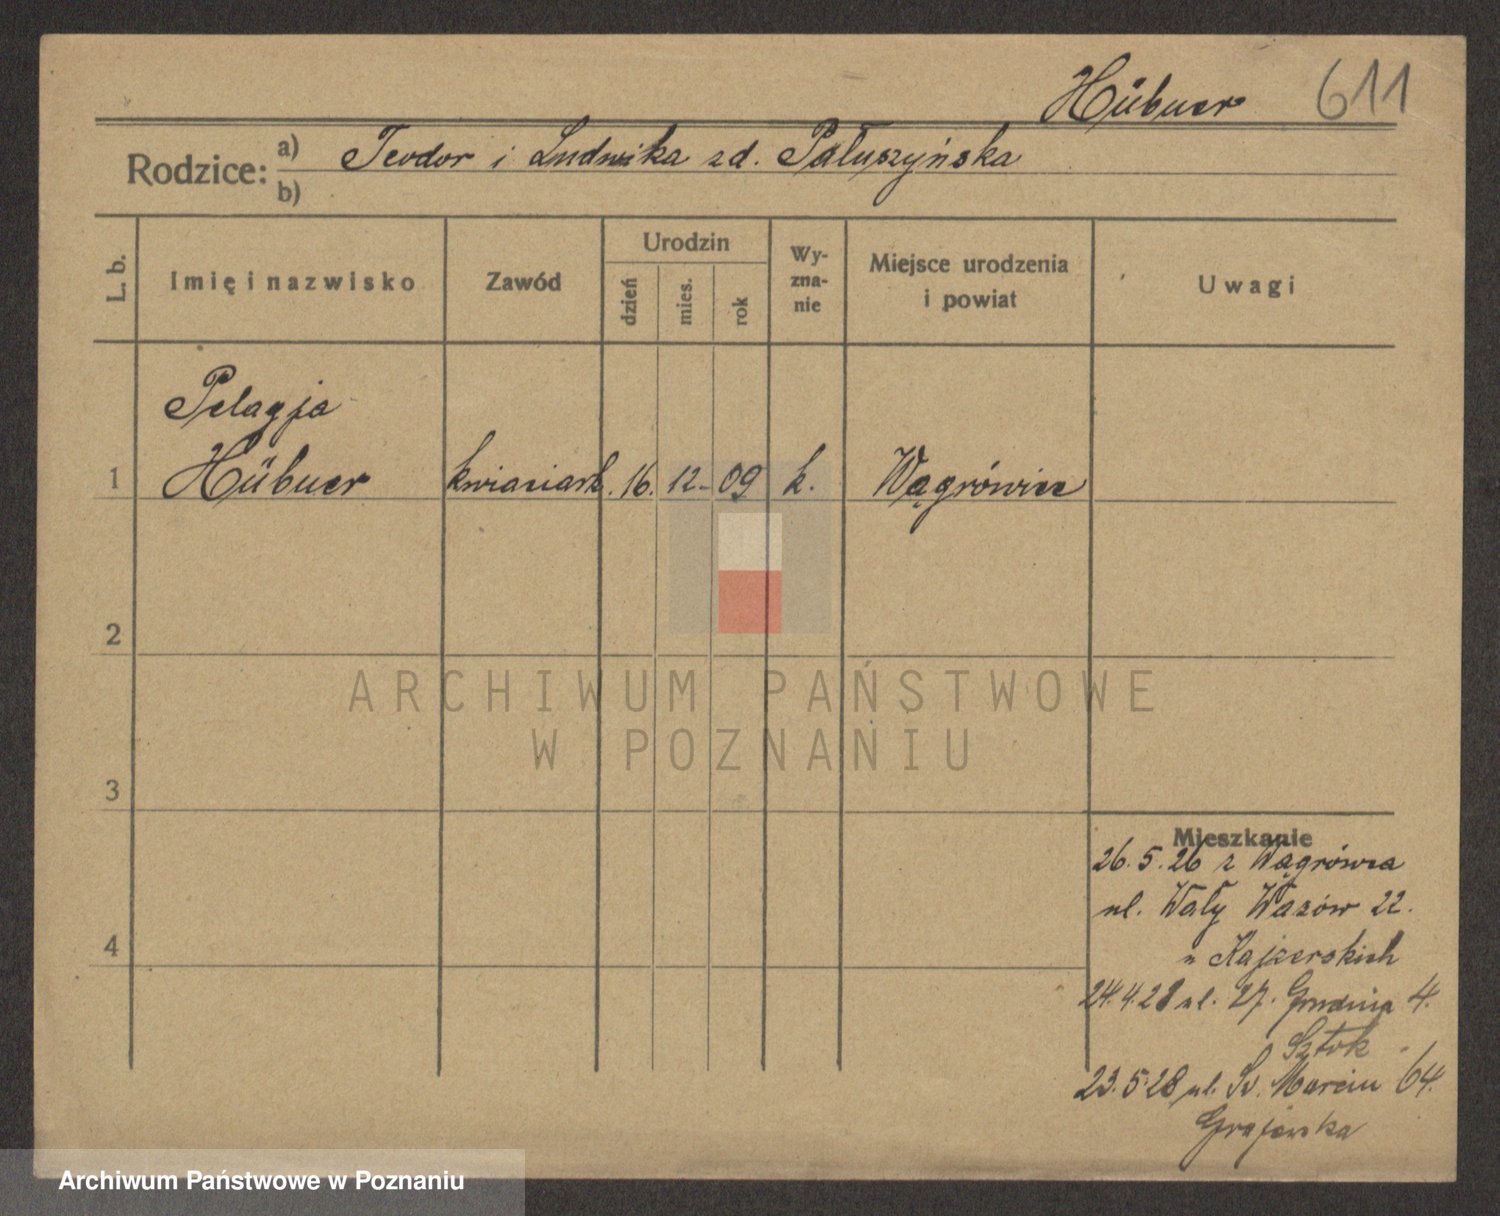 Hübner 611
Rodzice: a) Teodor i Ludwika zd. Pałuszyńska
b)
L. b. Imię i nazwisko Zawód Urodzin dzień mies. rok Wy-zna-nie Miejsce urodzenia i powiat Uwagi
Pelagja
1 Hübner kwiaciark. 16. 12. 09 k. Wągrówiec
2
ARCHIWUM PAŃSTWOWE
W POZNANIU
3
Mieszkanie
26. 5. 26 z Wągrówca
ul. Wały Wazów 22.
4
u Kajzerskich
24. 4. 28 ul. 27. Grudnia 4.
Sztok
23. 5. 28 ul. Św. Marcin 64.
Grajewska
Archiwum Państwowe w Poznaniu